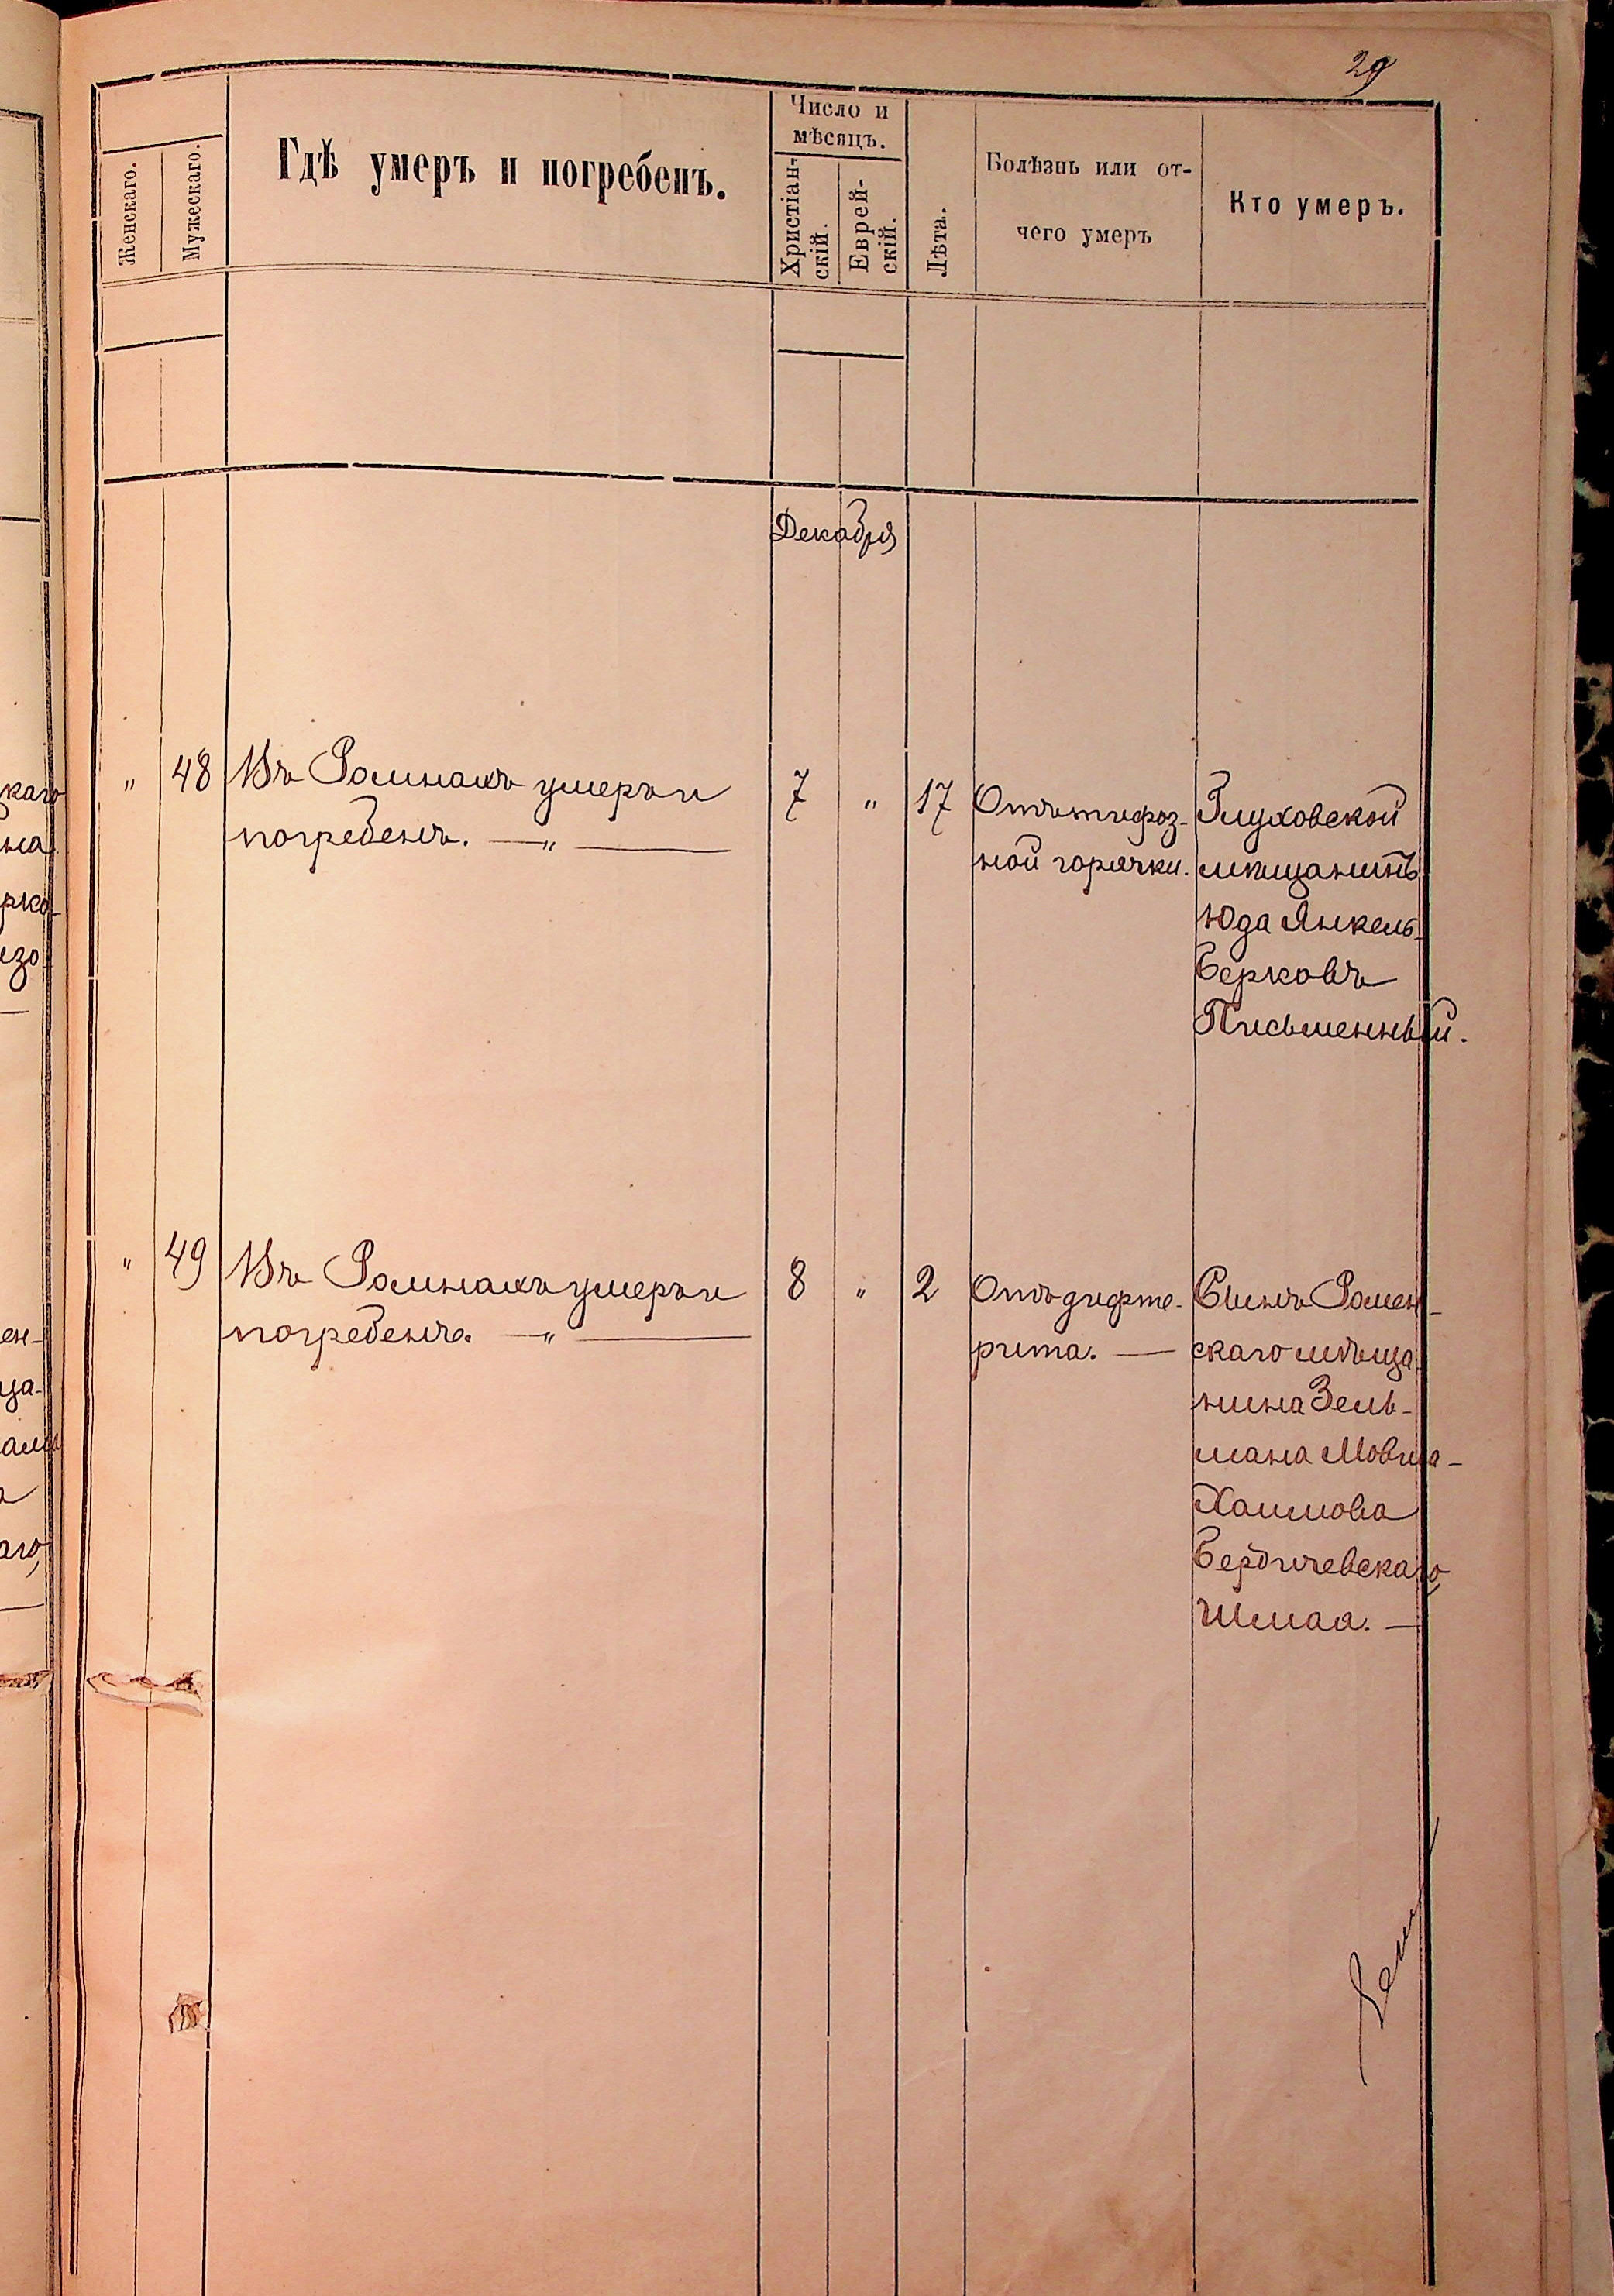 29
Женскаго.
Мужескаго.
Гдѣ умеръ и погребенъ.
Число и
мѣсяцъ.
Христіан-
скій.
Еврей-
скій.
Лѣта.
Болѣзнь или от-
чего умеръ
Кто умеръ.
Декабря
" 48 Въ Ромнахъ умеръ и
погребенъ. — " —
7 " 17
Отъ тифоз-
ной горячки.
Глуховской
мѣщанинъ
Юда Янкель
Берковъ
Письменный.
" 49 Въ Ромнахъ умеръ и
погребенъ. — " —
8 " 2
Отъ дифте-
рита. —
Сынъ Ромен-
скаго мѣща
нина Зель-
мана Мовша-
Хаимова
Бердичевскаго
Шмая. —
каго
на
рко-
изо
ен-
ща-
аго,